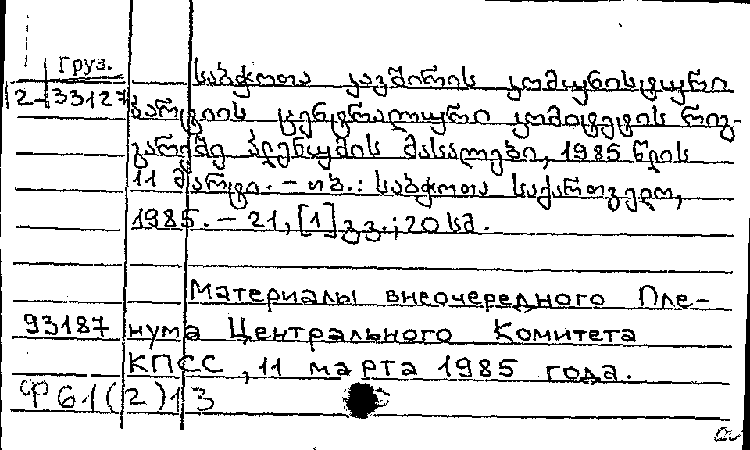 Груз.
2-33127
საბჭოთა კავშირის კომუნისტური
პარტიის ცენტრალური კომიტეტის რიგ-
გარეშე პლენუმის მასალები, 1985 წლის
11 მარტი. – თბ.: საბჭოთა საქართველო,
1985. – 21, [1] გვ.; 20 სმ.
Материалы внеочередного Пле-
93187 нума Центрального Комитета
КПСС, 11 марта 1985 года.
Ф61(2)13